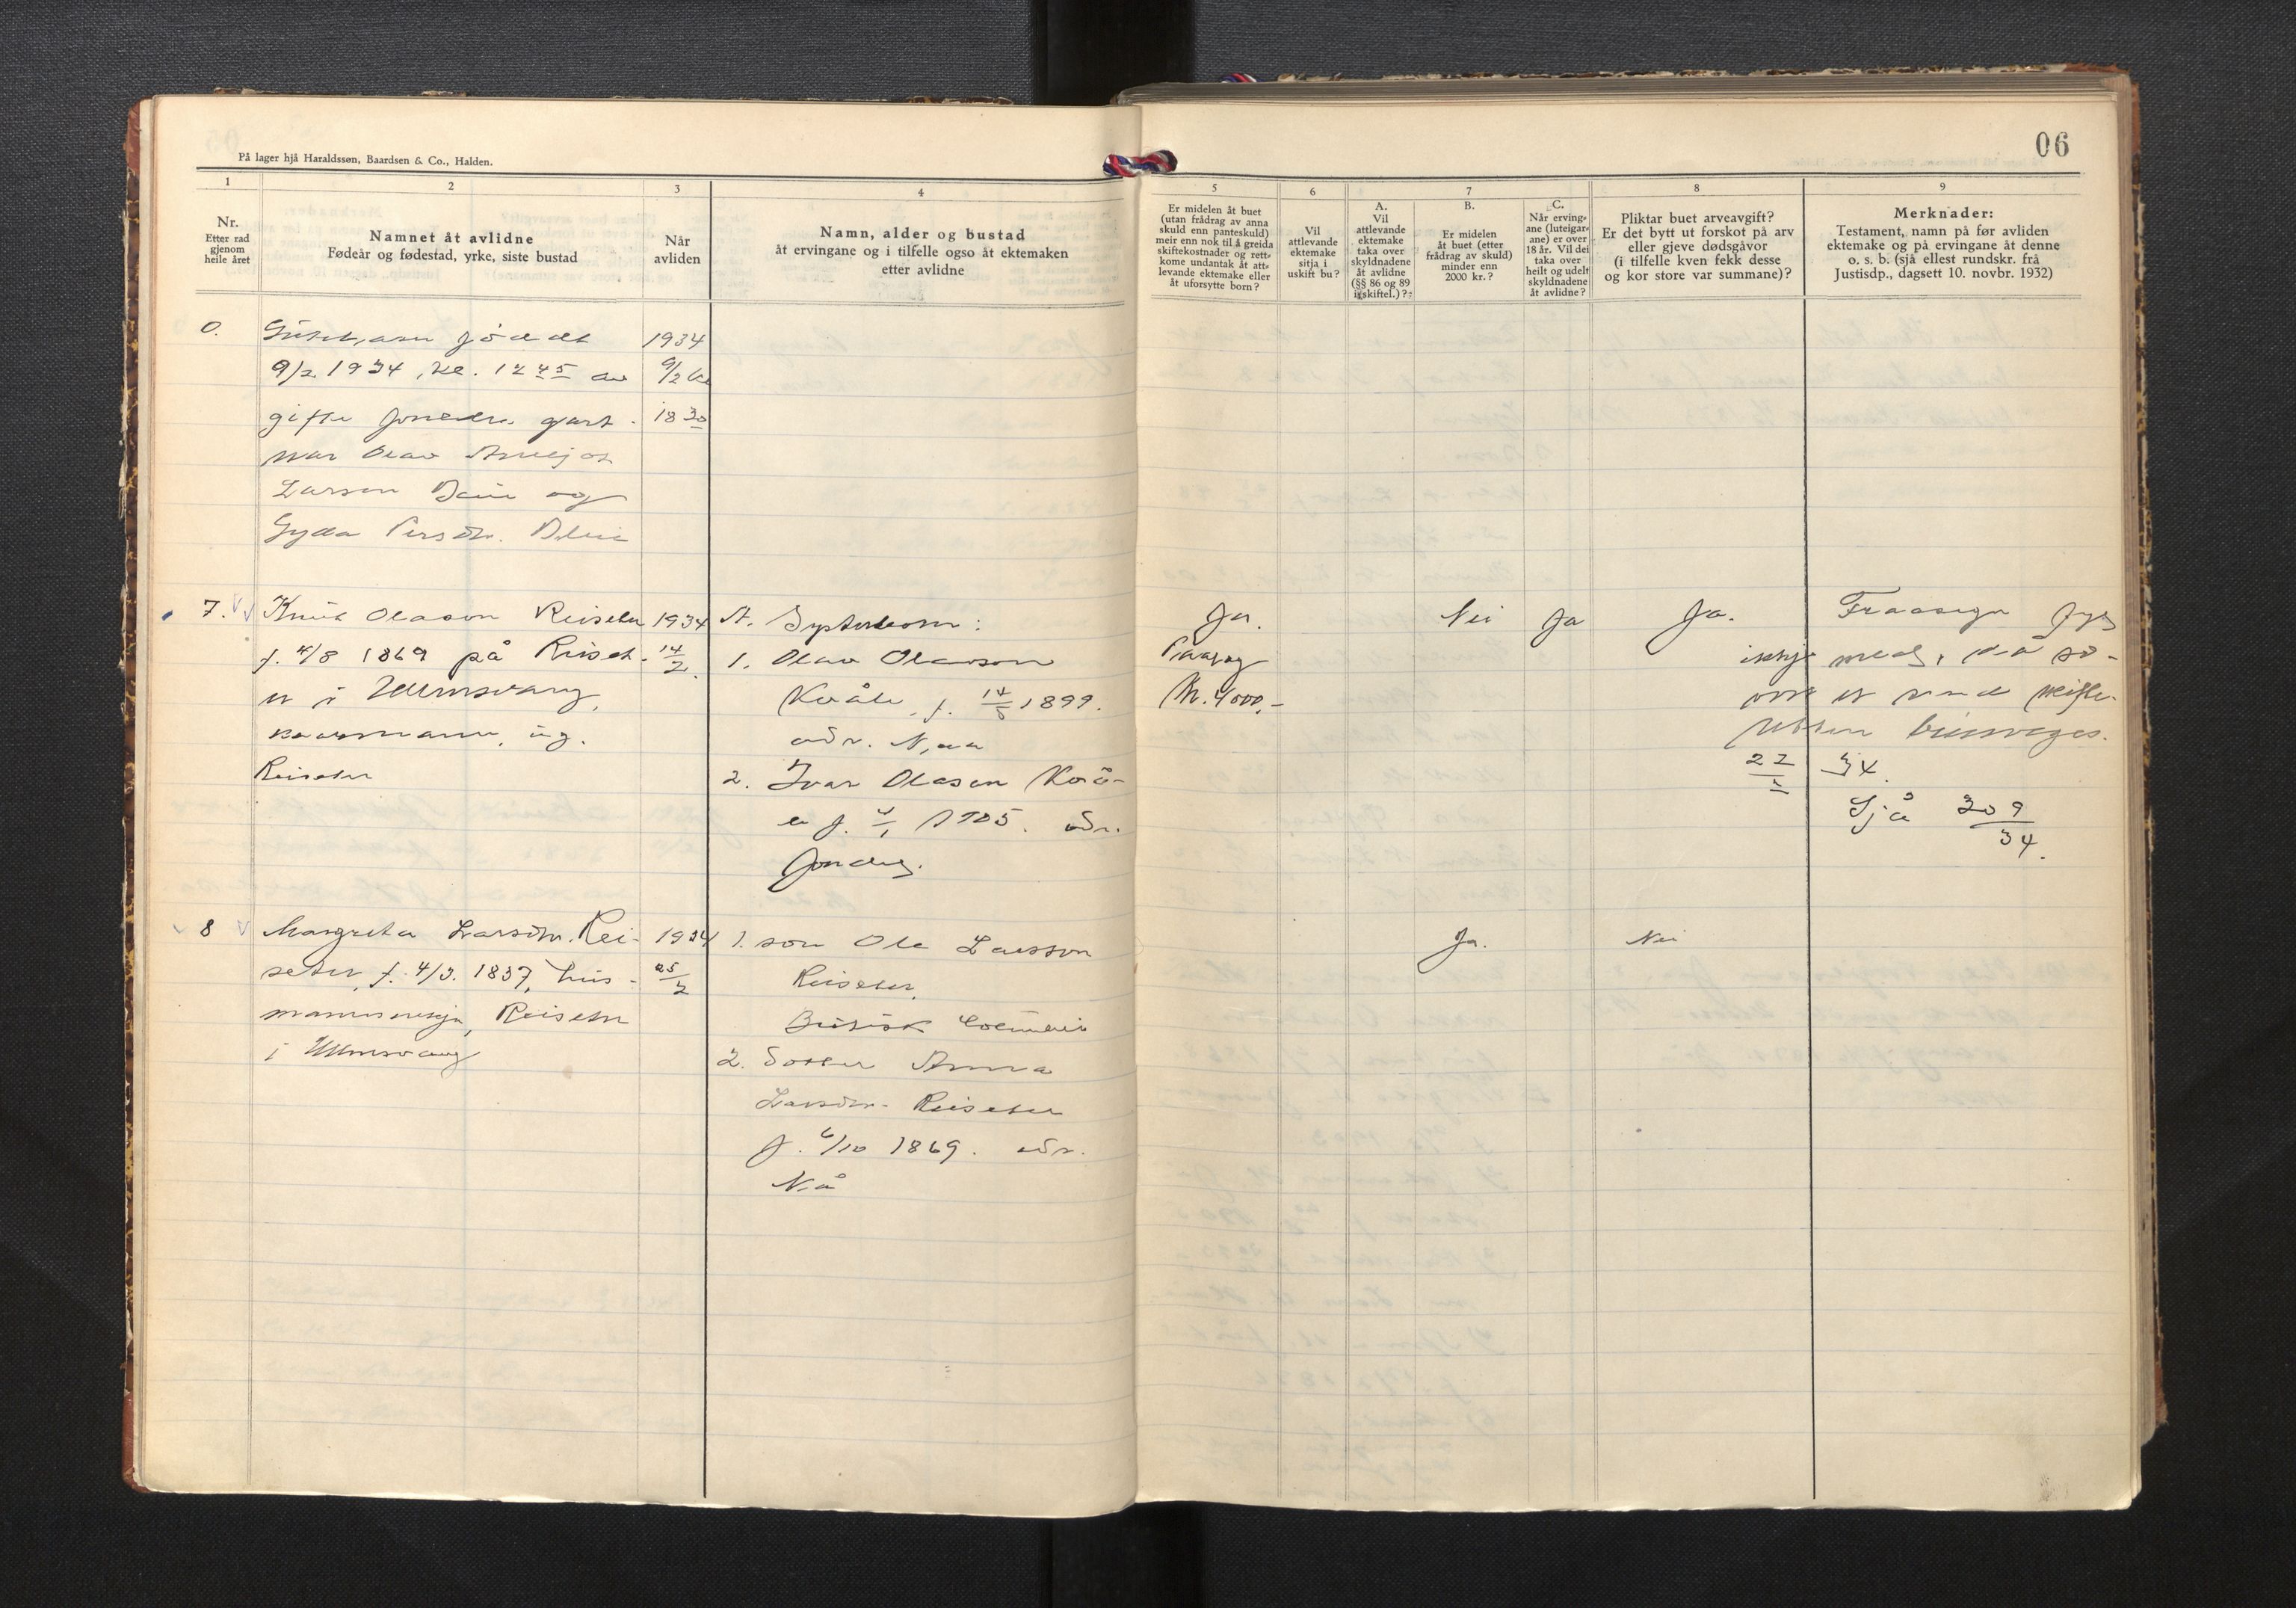 På lager hjå Haraldssøn, Baardsen & Co., Halden.
06
1
Nr.
Etter rad
gjenom
heile året
2
Namnet åt avlidne
Fødeår og fødestad, yrke, siste bustad
3
Når
avliden
4
Namn, alder og bustad
åt ervingane og i tilfelle også åt ektemaken
etter avlidne
5
Er midelen åt buet
(utan frådrag av anna
skuld enn panteskuld)
meir enn nok til å greida
skiftekostnader og rett-
kome undantak åt att-
levande ektemake eller
åt uforsytte born?
6
Vil
attlevande
ektemake
sitja i
uskift bu?
7
A.
Vil
attlevande
ektemake
taka over
skyldnadene
åt avlidne
(§§ 86 og 89
i skiftel.)?
B.
Er midelen
åt buet (etter
frådrag av skuld)
minder enn
2000 kr.?
C.
Når erving-
ane (luteigar-
ane) er over
18 år. Vil dei
taka over
heilt og udelt
skyldnadene
åt avlidne?
8
Pliktar buet arveavgift?
Er det bytt ut forskot på arv
eller gjeve dødsgåvor
(i tilfelle kven fekk desse
og kor store var summane)?
9
Merknader:
Testament, namn på før avliden
ektemake og på ervingane åt denne
o. s. b. (sjå ellest rundskr. frå
Justisdp., dagsett 10. novbr. 1932)
0. Gutebarn fødd 1934
9/2 1934, kl. 12 45 av 9/2 kl
gifte gart- 18 30
nar Olav
Larson og
Gydda Persdtr.
7. Knut Olason Reiseter 1934
f. /8 1869 på Reiset- 14/2
er i Ullensvang,
ug.
Reiseter
A. Systerborn:
1. Olav Olavson
Kvåle, f. 14/5 1899.
adr. Naa
2. Ivar Olason Kvå-
le f. 4/1 1905. adr.
Jondal.
Ja.
Kr. 4000,-
Nei
Ja
Ja.
Fraasegn fyl
ikkje med, då
er
22/2 34.
Sjå 309/34.
8 Margreta Larsdtr. Rei- 1934
seter, f. 4/3. 1837, hus- 25/2
mannsenkja, Reiseter
i Ullensvang
1. son Ola Larsson
Reiseter,
2. Dotter Anna
Larsdtr. Reiseter
f. 6/10 1869. adr.
Nå
Ja.
Nei